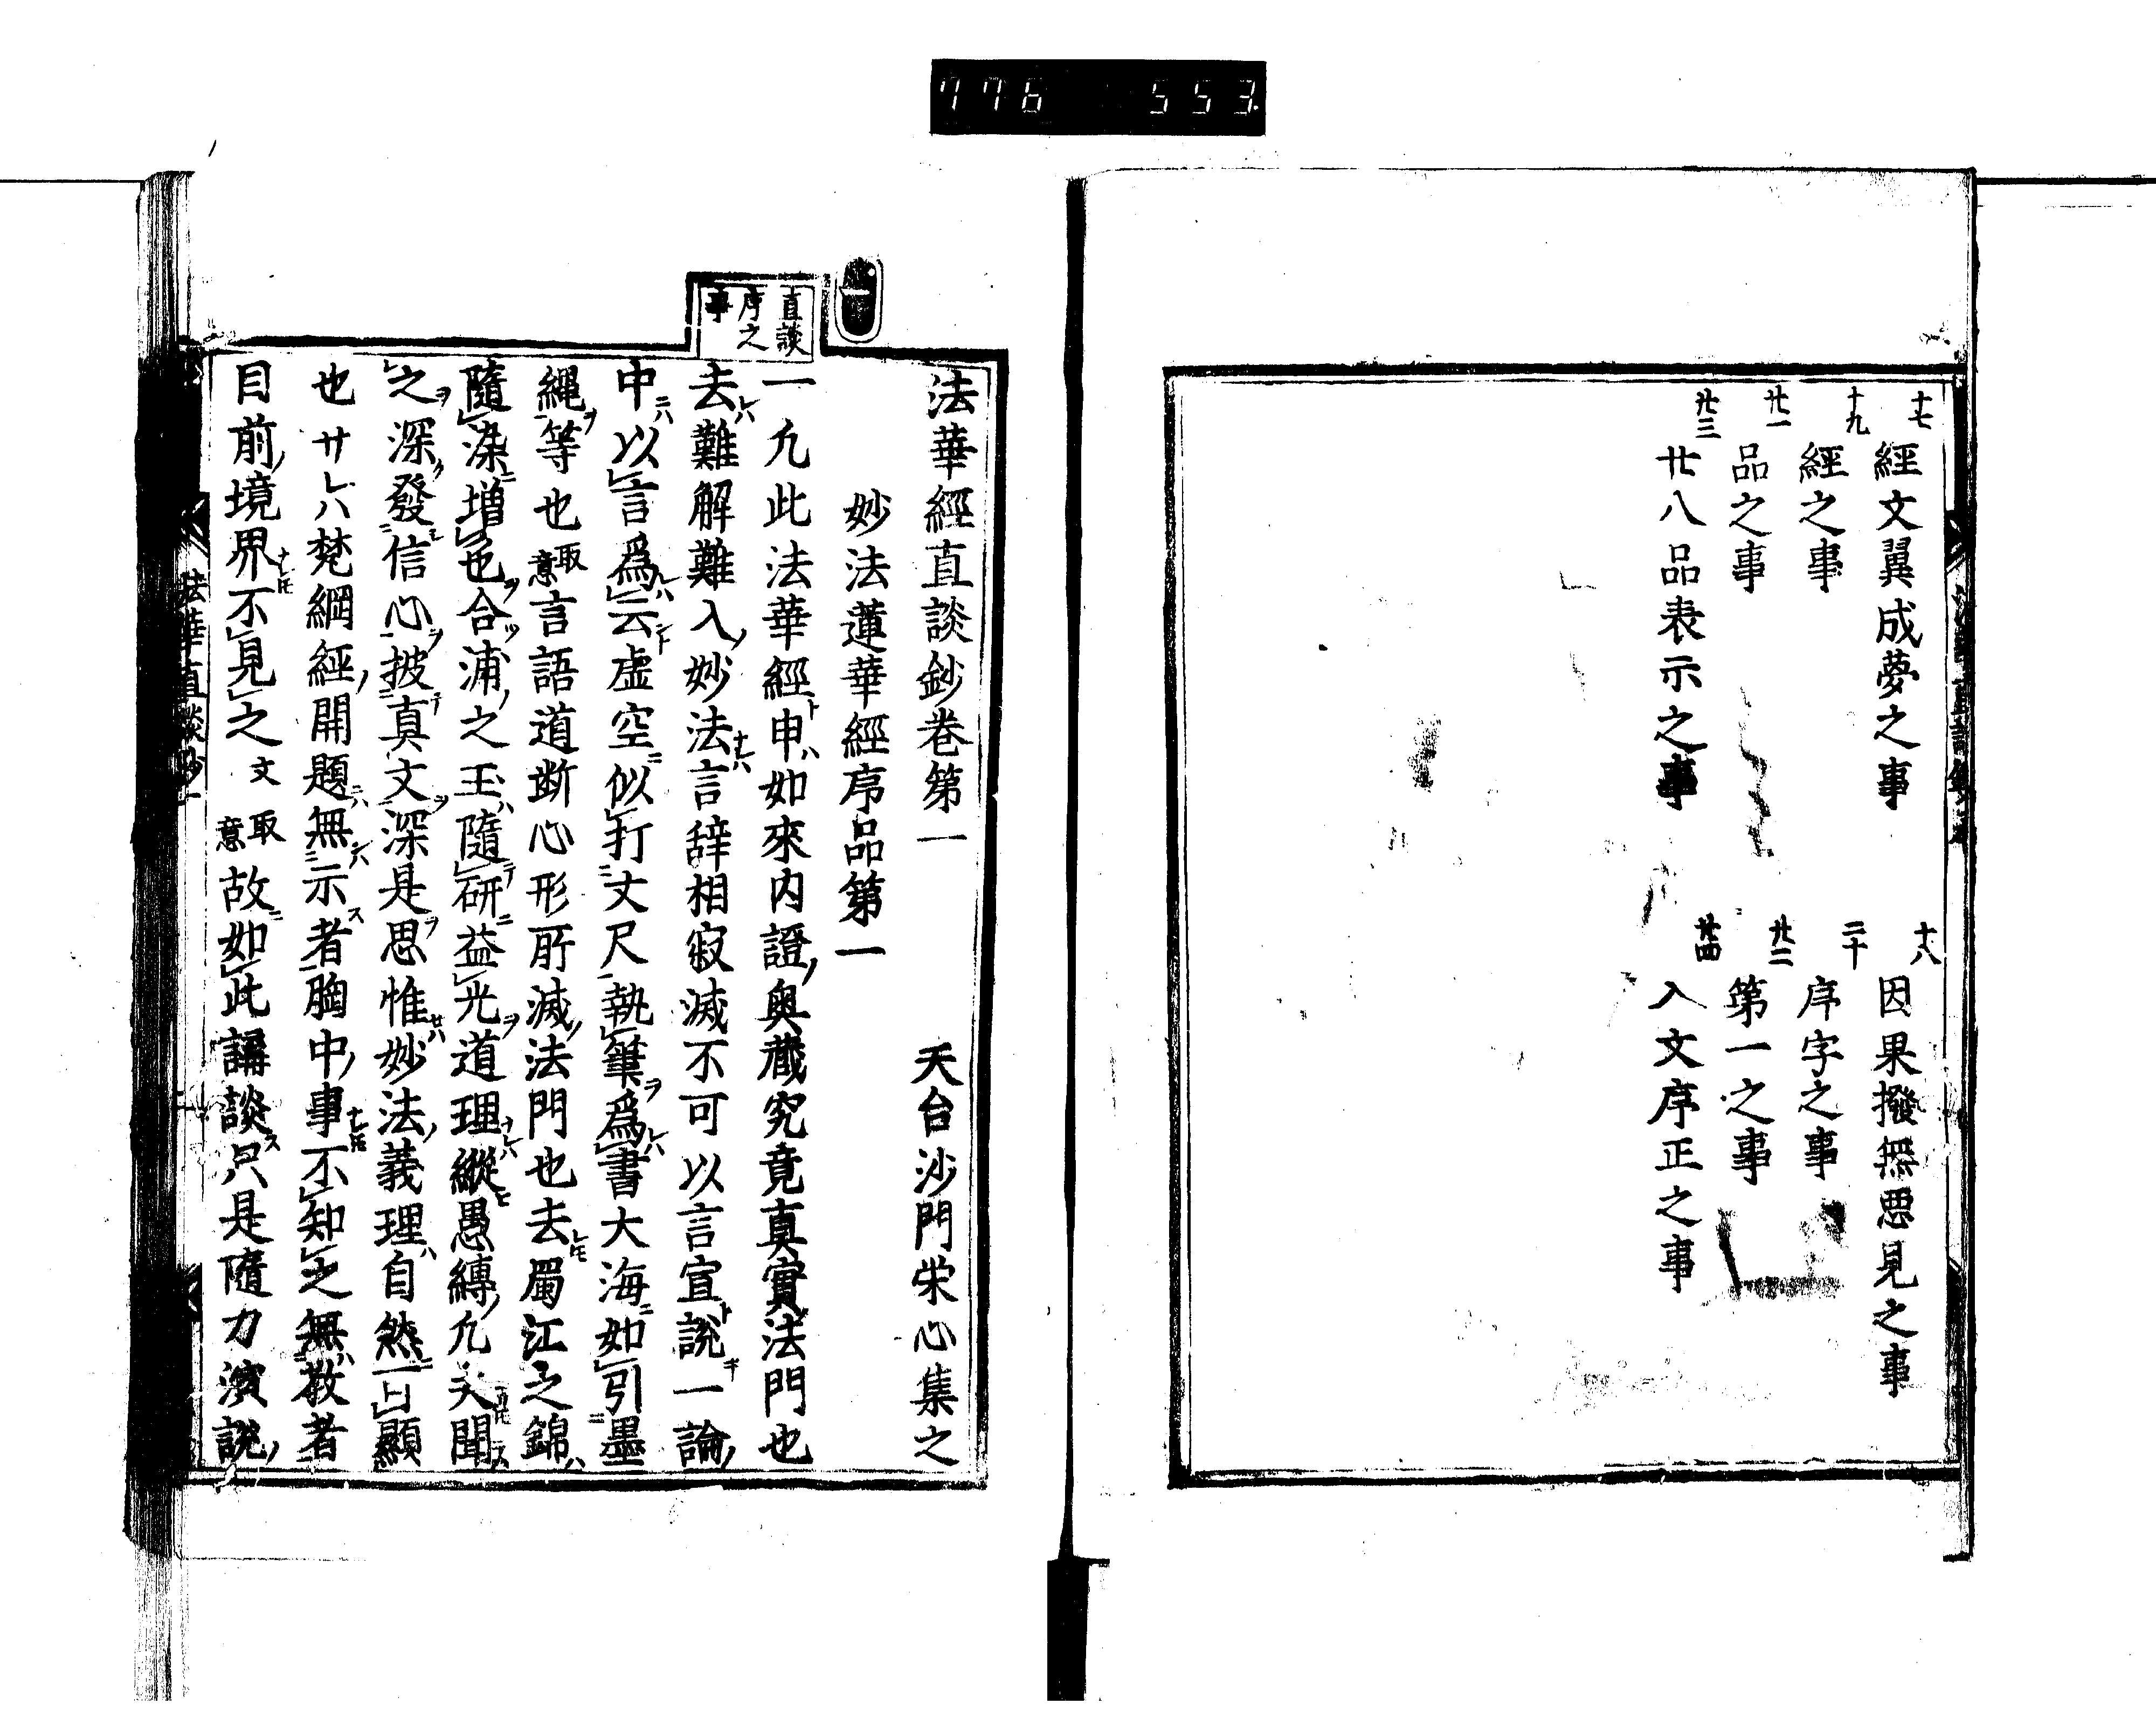 776 553
十七 經文翼成夢之事
十八 因果撥無悪見之事
十九 經之事
二十 序字之事
廿一 品之事
廿二 第一之事
廿三 廿八品表示之事
廿四 入文序正之事
直談
序之
事
法華經直談鈔巻第一 天台沙門栄心集之
妙法蓮華經序品第一
一凢此法華經ト申ハ如來内證ノ奥蔵究竟真實ノ法門也
去レハ難解難入ノ妙法ナレハ言辞相寂滅不可以言宣ト説キ一論ノ
中ニハ以言爲レハ云ント虚空ニ似打丈尺執筆ヲ爲レハ書大海ニ如引墨
繩ヲ等也取意言語道断心形所滅ノ法門也去レトモ蜀江之錦ハ
隨染ニ増色ヲ合浦ノ之玉ハ隨研テニ益光ヲ道理ナレハ縱ヒ愚縛ノ凢夫聞
之ヲ深ク發信心ヲ披テ真文ヲ深是ヲ思惟セハ妙法ノ義理ハ自然ニ可顯
也サレハ梵網經ノ開題ニハ無ンハ示ス者胸中ノ事ナレトモ不知之無ハ教者
目前ノ境界ナレトモ不見之文取意故ニ如此講談ス只是隨力演説ノ
法華直談鈔一